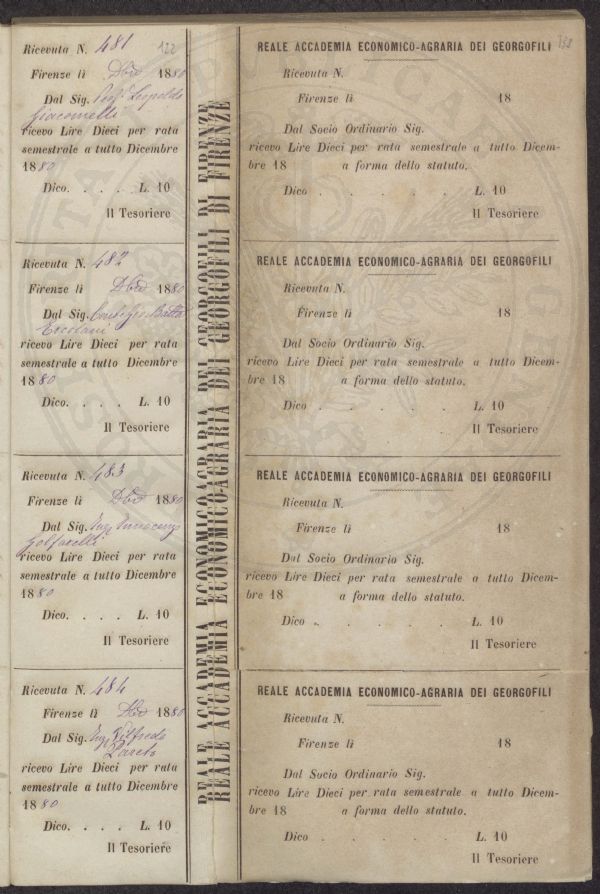 Ricevuta N. 481 122
Firenze lì Dbre 1880
Dal Sig. Prof. Leopoldo
Giacomelli
ricevo Lire Dieci per rata
semestrale a tutto Dicembre
1880
Dico. . . . L. 10
Il Tesoriere
Ricevuta N. 482
Firenze lì Dbre 1880
Dal Sig. Batta
Ercolani
ricevo Lire Dieci per rata
semestrale a tutto Dicembre
1880
Dico. . . . L. 10
Il Tesoriere
Ricevuta N. 483
Firenze lì Dbre 1880
Dal Sig. Ing. Innocenzo
Golfarelli
ricevo Lire Dieci per rata
semestrale a tutto Dicembre
1880
Dico. . . . L. 10
Il Tesoriere
Ricevuta N. 484
Firenze lì Dbre 1880
Dal Sig. Ing. Vilfredo
Pareto
ricevo Lire Dieci per rata
semestrale a tutto Dicembre
1880
Dico. . . . L. 10
Il Tesoriere
REALE ACCADEMIA ECONOMICO-AGRARIA DEI GEORGOFILI DI FIRENZE
REALE ACCADEMIA ECONOMICO-AGRARIA DEI GEORGOFILI DI FIRENZE
REALE ACCADEMIA ECONOMICO-AGRARIA DEI GEORGOFILI
Ricevuta N.
Firenze lì 18
Dal Socio Ordinario Sig.
ricevo Lire Dieci per rata semestrale a tutto Dicem-
bre 18 a forma dello statuto.
Dico . . . . . L. 10
Il Tesoriere
REALE ACCADEMIA ECONOMICO-AGRARIA DEI GEORGOFILI
Ricevuta N.
Firenze lì 18
Dal Socio Ordinario Sig.
ricevo Lire Dieci per rata semestrale a tutto Dicem-
bre 18 a forma dello statuto.
Dico . . . . . L. 10
Il Tesoriere
REALE ACCADEMIA ECONOMICO-AGRARIA DEI GEORGOFILI
Ricevuta N.
Firenze lì 18
Dal Socio Ordinario Sig.
ricevo Lire Dieci per rata semestrale a tutto Dicem-
bre 18 a forma dello statuto.
Dico . . . . . L. 10
Il Tesoriere
REALE ACCADEMIA ECONOMICO-AGRARIA DEI GEORGOFILI
Ricevuta N.
Firenze lì 18
Dal Socio Ordinario Sig.
ricevo Lire Dieci per rata semestrale a tutto Dicem-
bre 18 a forma dello statuto.
Dico . . . . . L. 10
Il Tesoriere